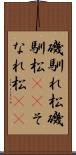 磯馴れ松磯
馴松︵︵そ
なれ松︵︵